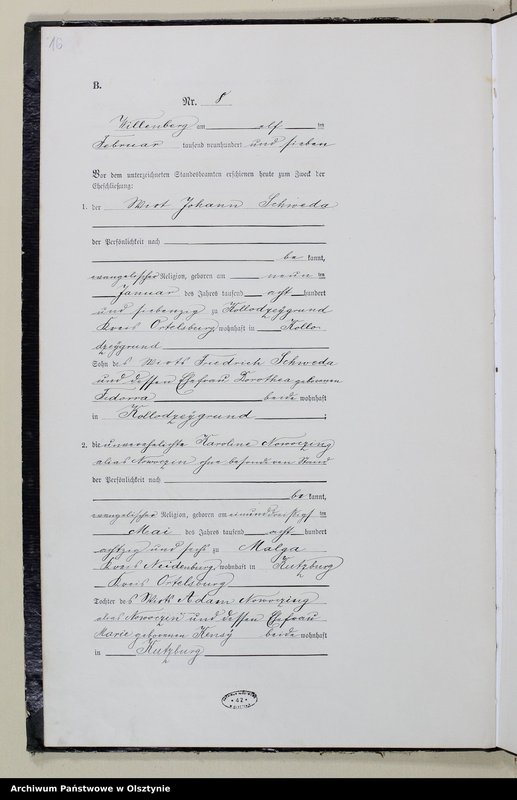 16
B.
Nr. 8
Willenberg am elf ten
Februar tausend neunhundert und sieben
Vor dem unterzeichneten Standesbeamten erschienen heute zum Zweck der
Eheschließung:
1. der Wirt Johann Schweda
der Persönlichkeit nach
be kannt,
evangelischer Religion, geboren am neun ten
Januar des Jahres tausend acht hundert
und siebenzig zu Kollodzeygrund
Kreis Ortelsburg, wohnhaft in Kollo-
dzeygrund
Sohn des Wirts Friedrich Schweda
und dessen Ehefrau Dorothea geborenen
Fidorra beide wohnhaft
in Kollodzeygrund ;
2. die unverehelichte Karoline Nowoczing
alias Nowoczin ohne besonderen Stand
der Persönlichkeit nach
be kannt,
evangelischer Religion, geboren am einunddreißigs ten
Mai des Jahres tausend acht hundert
achtzig und sechs zu Malga
Kreis Neidenburg, wohnhaft in Kutzburg
Kreis Ortelsburg
Tochter des Wirts Adam Nowoczing
alias Nowoczin und dessen Ehefrau
Marie geborenen Kensy beide wohnhaft
in Kutzburg
42
Archiwum Państwowe w Olsztynie